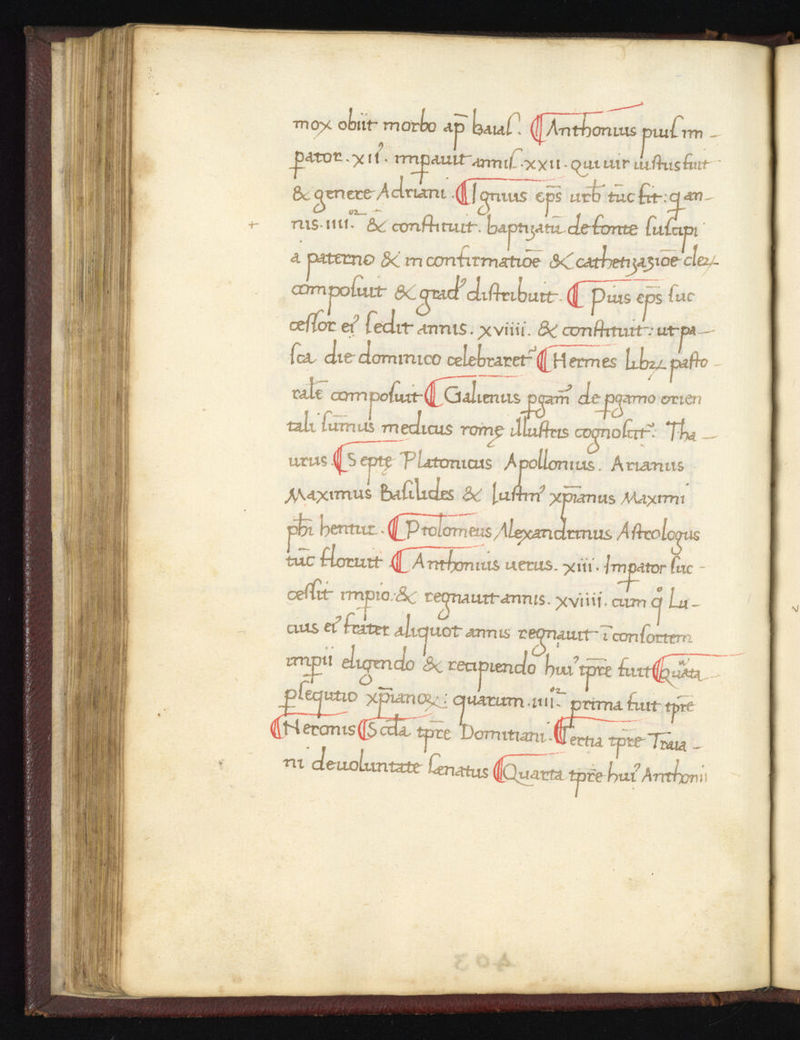 mox obiit morbo ap̄ baias. ¶ Anthonius pius im-
ꝑator .xiiꝰ. imꝑauit annis .xxii. Qui uir iustus fuit
& genere Adriani. ¶ Ignius ep̄s urb̄ tūc fit: q̄ an-
nis .iiii. & constituit. baptiȝatū de fonte suscipi
a paterno & in confirmatiōe & cathetiȝaȝiōe cleꝝ
composuit & gradꝰ distribuit. ¶ Pius ep̄s suc
cessor eiꝰ sedit annis. xviiii. & constituit: ut pa-
sca die dominico celebraretꝰ ¶ Hermes libꝝ pasto-
ralē composuit ¶ Galienus ꝑgamꝰ de ꝑgamo orien
tali sūmus medicus romę illustris cognoscitꝰ. Tha-
urus. ¶ Septę Platonicus Apollonius. Arianus
Maximus Basilides & Iustinꝰ xp̄ianus Maximi
ph̄i hentur. ¶ Ptolomeus Alexandrinus Astrologus
tūc floruit ¶ Anthonius uerus. xiii. Imꝑator suc-
cessit imꝑio. & regnauit annis. xviiii. cum qͦ Lu-
cius eiꝰ frater aliquot annis regnauit ī consortem
imꝑii eligendo & recipiendo huiꝰ tp̄re fuit ¶ Quarta
ꝑsequtio xp̄ianoꝝ: quarum .iiii. prima fuit tp̄re
¶ Neronis ¶ Scd̄a tp̄re Domitiani. ¶ Tertia tp̄re Traia-
ni de uoluntate senatus ¶ Quarta tp̄re huiꝰ Anthonii
403